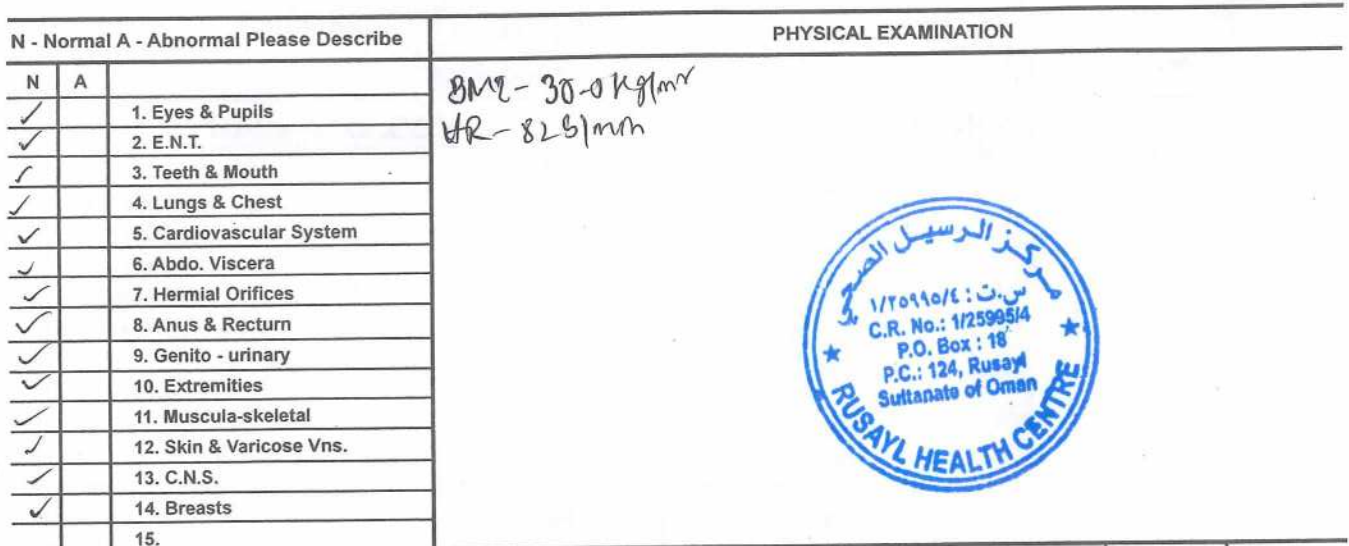 N - Normal A - Abnormal Please Describe
PHYSICAL EXAMINATION
N A
BMI - 30.0 kg/m²
✓ 1. Eyes & Pupils
HR - 82 b/min
✓ 2. E.N.T.
✓ 3. Teeth & Mouth
✓ 4. Lungs & Chest
✓ 5. Cardiovascular System
✓ 6. Abdo. Viscera
✓ 7. Hermial Orifices
✓ 8. Anus & Recturn
✓ 9. Genito - urinary
✓ 10. Extremities
✓ 11. Muscula-skeletal
✓ 12. Skin & Varicose Vns.
✓ 13. C.N.S.
✓ 14. Breasts
15.
مركز الرسيل الصحي
س.ت : ١/٢٥٩٩٥/٤
C.R. No.: 1/25995/4
P.O. Box : 18
P.C.: 124, Rusayl
Sultanate of Oman
RUSAYL HEALTH CENTRE